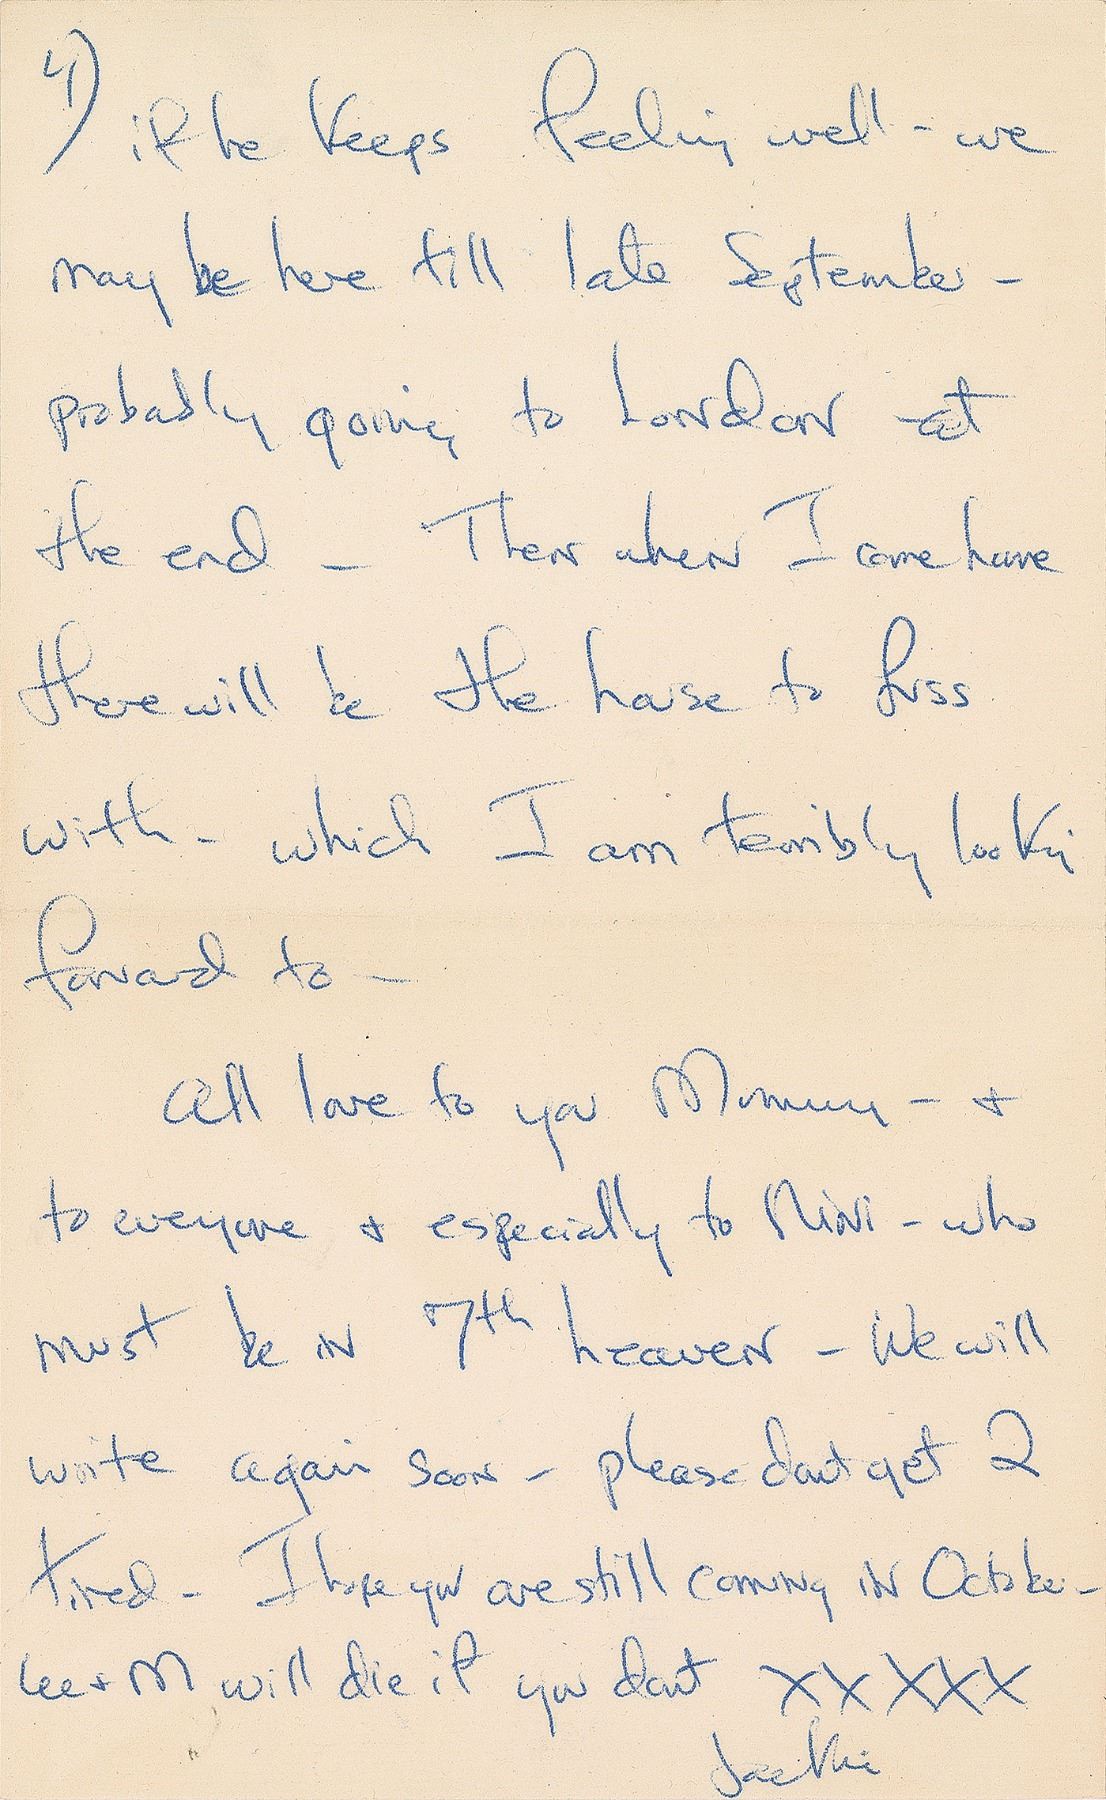 4) if he keeps feeling well - we
may be here till late September -
probably going to London at
the end - Then when I come home
there will be the house to fuss
with - which I am terribly looking
forward to -
All love to you Mummy - +
to everyone + especially to Nini - who
must be in 7th heaven - We will
write again soon - please dont get 2
tired - I hope you are still coming in October -
Lee + M will die if you dont XXXXX
Jackie